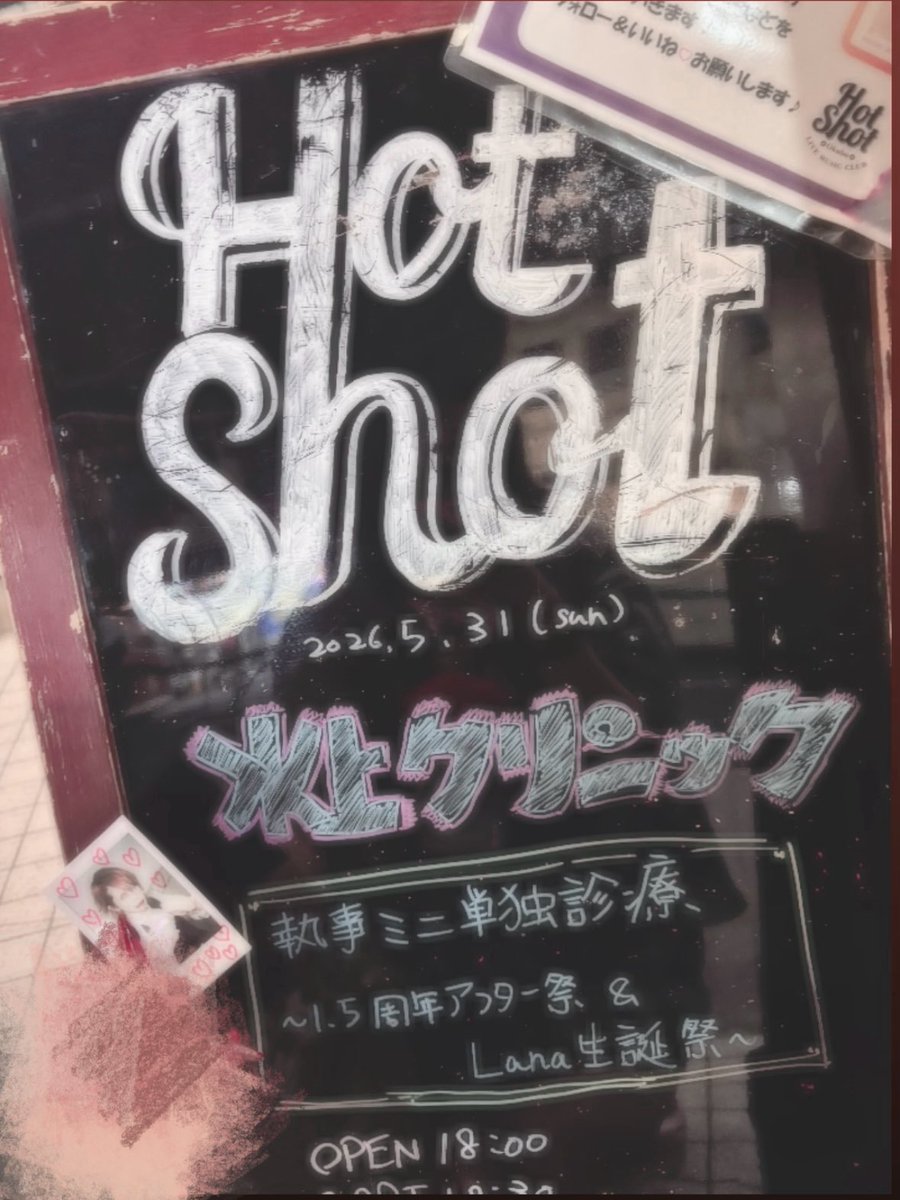 などを
フォロー＆いいね♡お願いします♪
Hot
Shot
LIVE MUSIC CLUB
Hot
Shot
2026.5.31(sun)
水上クリニック
執事ミニ単独診療
~1.5周年アフター祭 &
Lana生誕祭~
OPEN 18:00